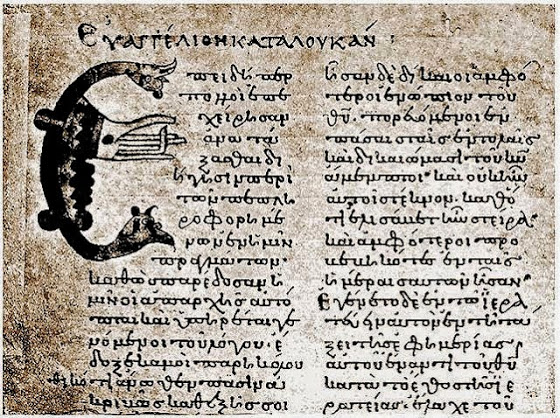 Εὐαγγέλιον κατὰ Λουκᾶν :
Ἐπειδήπερ
πολλοὶ ἐπε
χείρησαν
ἀνατά
ξασθαι δι
ήγησιν περὶ
τῶν πεπλη
ροφορημέ
νων ἐν ἡμῖν
πραγμάτων.
καθὼς παρέδοσαν ἡ
μῖν οἱ ἀπαρχῆς αὐτό
πται καὶ ὑπηρέται γε
νόμενοι τοῦ λόγου· ἔ
δοξε κἀμοὶ παρηκολου
θηκότι ἄνωθεν πᾶσιν ἀ
κριβῶς καθεξῆς σοι
ἦσαν δὲ δίκαιοι ἀμφό
τεροι ἐνώπιον τοῦ
θυ. πορευόμενοι ἐν
πάσαις ταῖς ἐντολαῖς
καὶ δικαιώμασι τοῦ κυ
ἄμεμπτοι· καὶ οὐκ ἦν
αὐτοῖς τέκνον. καθό
τι ἐλισάβετ ἦν στεῖρα·
καὶ ἀμφότεροι προ
βεβηκότες ἐν ταῖς
ἡμέραις αὐτῶν ἦσαν·
Ἐγένετο δὲ ἐν τῷ ἱερα
τεύειν αὐτὸν ἐν τῇ τά
ξει τῆς ἐφημερίας
αὐτοῦ ἔναντι τοῦ θυ
κατὰ τὸ ἔθος τῆς ἱε
ρατείας· ἔλαχε τοῦ